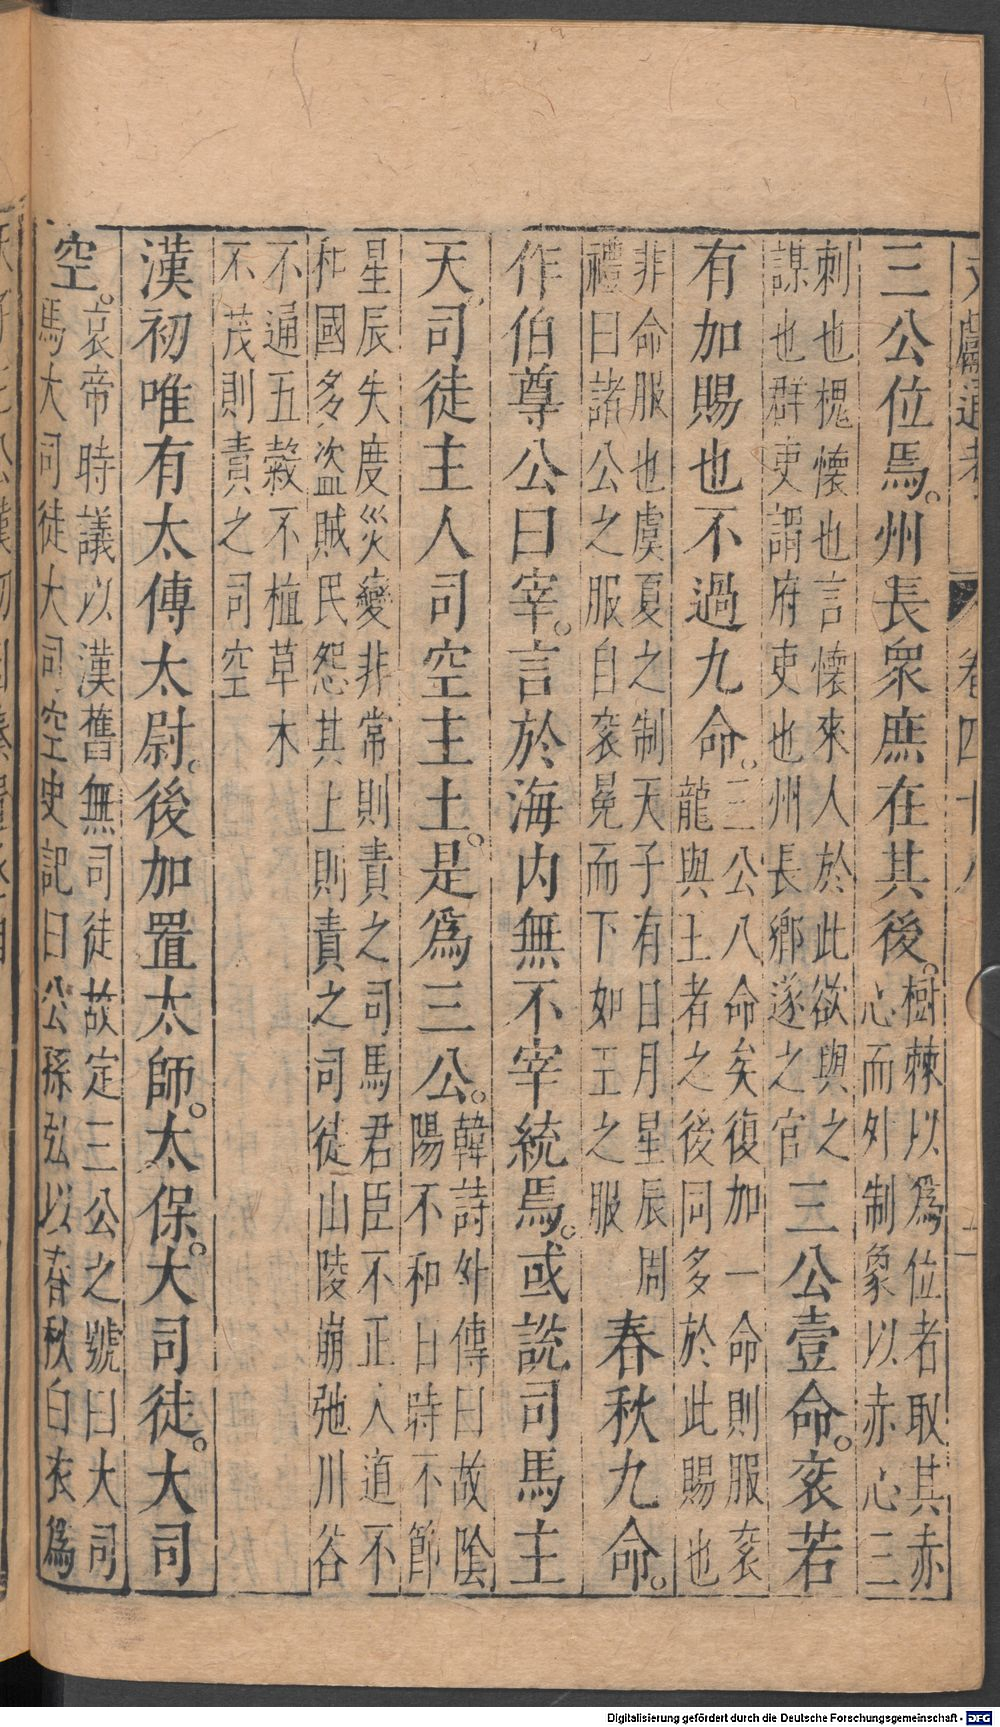 文獻通考 卷四十八 二
三公位焉。州長衆庶在其後。樹棘以爲位者取其赤
心而外制象以赤心三
刺也槐懷也言懷來人於此欲與之
謀也群吏謂府吏也州長鄉遂之官
三公壹命。衮若
有加賜也不過九命。三公八命矣復加一命則服衮
龍與王者之後同多於此賜也
非命服也虞夏之制天子有日月星辰周
禮曰諸公之服自衮冕而下如王之服
春秋九命。
作伯尊公曰宰。言於海内無不宰統焉。或說司馬主
天。司徒主人司空主土。是爲三公。韓詩外傳曰故陰
陽不和日時不節
星辰失度災變非常則責之司馬君臣不正人道不
和國多盜賊民怨其上則責之司徒山陵崩弛川谷
不通五穀不植草木
不茂則責之司空
漢初唯有太傅太尉。後加置太師。太保。大司徒。大司
空。哀帝時議以漢舊無司徒故定三公之號曰大司
馬大司徒大司空史記曰公孫弘以春秋白衣爲
Digitalisierung gefördert durch die Deutsche Forschungsgemeinschaft - DFG